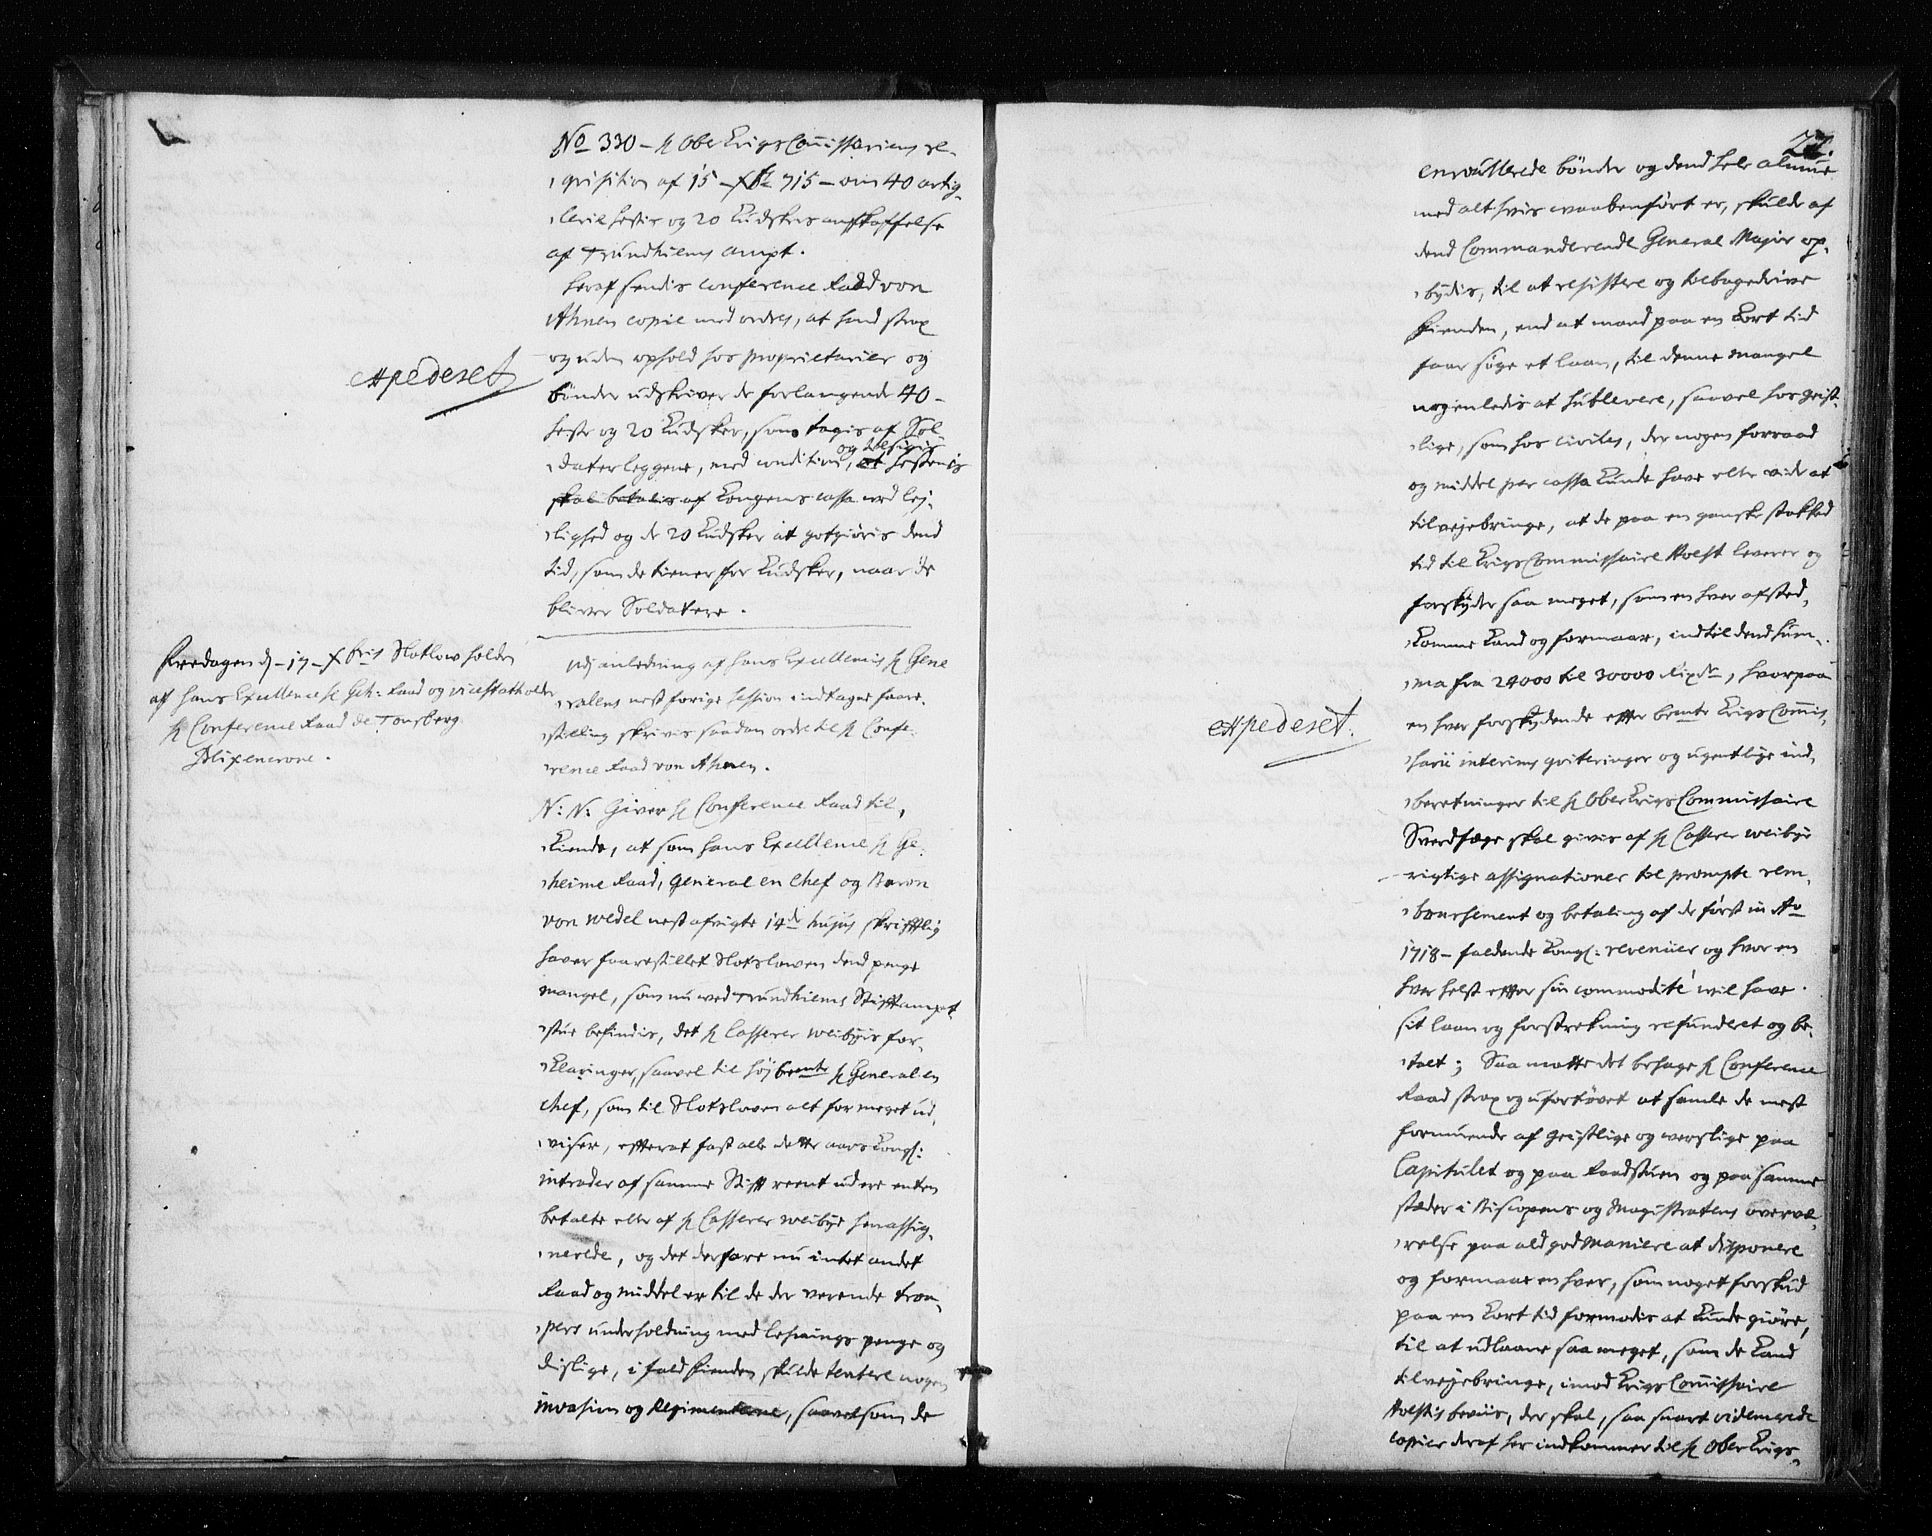 No 330 - H Ober Krigs Commissariens re-
qvisition af 15 - Xbr 715 - om 40 artig-
lerie heste og 20 Kudskes anskaffelse
af Trundhiems ampt.
Heraf sendis Conference Raad von
Ahnen copie med ordre, at hand strax
og uden ophold hos proprietarier og
Expederet
bønder udskriver de forlangende 40 -
heste og 20 Kudsker, som tagis af Sol
daterleggene, med condition, at hestene
skal betalis af Kongens cassa ved lej-
lighed og de 20 Kudsker at gotgiøris dend
tid, som de tiener for Kudsker, naar de
bliver Soldatere.
Fredagen d. 17 - Xbris Slotlow holden
af hans Excellence H Geh: Raad og vicestatholder
H Conference Raad de Tonsberg
Blixencrone.
Udj anledning af hans Excellences H Gene
rallens nest forige session indtagne faare-
stilling skrivis saadan ordre til H Confe-
rence Raad von Ahnen.
N: N: Giver H Conference Raad til
kiende, at som hans Excellence H Ge-
heime Raad, General en Chef og Baron
von Wedel nest afvigte 14de hujus skrifftlig
haver faarestillet Slotslowen dend penge
mangel, som nu ved Trundhiems Stifftampt
stue befindis, det H Casserer Weibyes for-
klaringer, saavel til højbemte H General en
chef, som til Slotsloven alt for meget ud
viser, efterat fast alle dette aars Kongl:
intrader af samme Stifft reent udere enten
betalte eller af H Casserer Weibye henassig-
nerede, og det derfore nu intet andet
Raad og middel er til de der verende trou-
pers underholdning med lehnings penge og
dislige, i fald fienden skulde tentere nogen
invasion og Regimenterne, saavelsom de
27.
enroullerede bønder og dend hele almue
med alt hvis waabenført er, skulde af
dend Commanderende General Major op-
bydis, til at resistere og tilbagedrive
fienden, end at mand paa en kort tid
faar søge et laan, til denne mangel
nogenledis at sublevere, saavel hos geist-
lige, som hos civiles, der nogen forraad
og middel per cassa kunde have eller vide at
tilvejebringe, at de paa en ganske stakked
tid til Krigs Commissaire Holst leverer og
forskyder saa meget, som en hver afsted
komme kand og formaar, indtil dend sum-
ma fra 24000 til 30000 Rixdr, hvorpaa
Expederet.
en hver forskydende efter bemte Krigs Commis-
sarii interims qviteringer og ugentlige ind-
beretninger til H Ober Krigs Commissaire
Sverdfæge skal givis af H Casserer Weibye
rigtige assignationer til prompte rem-
boursement og betaling af de først in Ao
1718 - faldende Kongl: revenuer og hvor en
hver helst efter sin commodité wil have
sit laan og forstrekning refunderet og be-
talt; Saa matte det behage H Conference
Raad strax og ufortøvet at samle de mest
formuende af geistlige og werslige paa
Capitulet og paa Raadstuen og paa samme
stæder i Biscopens og Magistratens overvæ-
relse paa ald god Maniere at disponere
og formaae en hver, som noget forskud
paa en kort tid formodis at kunde giøre,
til at udlaane saa meget, som de kand
tilvejebringe, imod Krigs Commissaire
Holstis beviis, der skal, saa snart vidimerede
copier deraf her indkommer til H Ober Krigs-